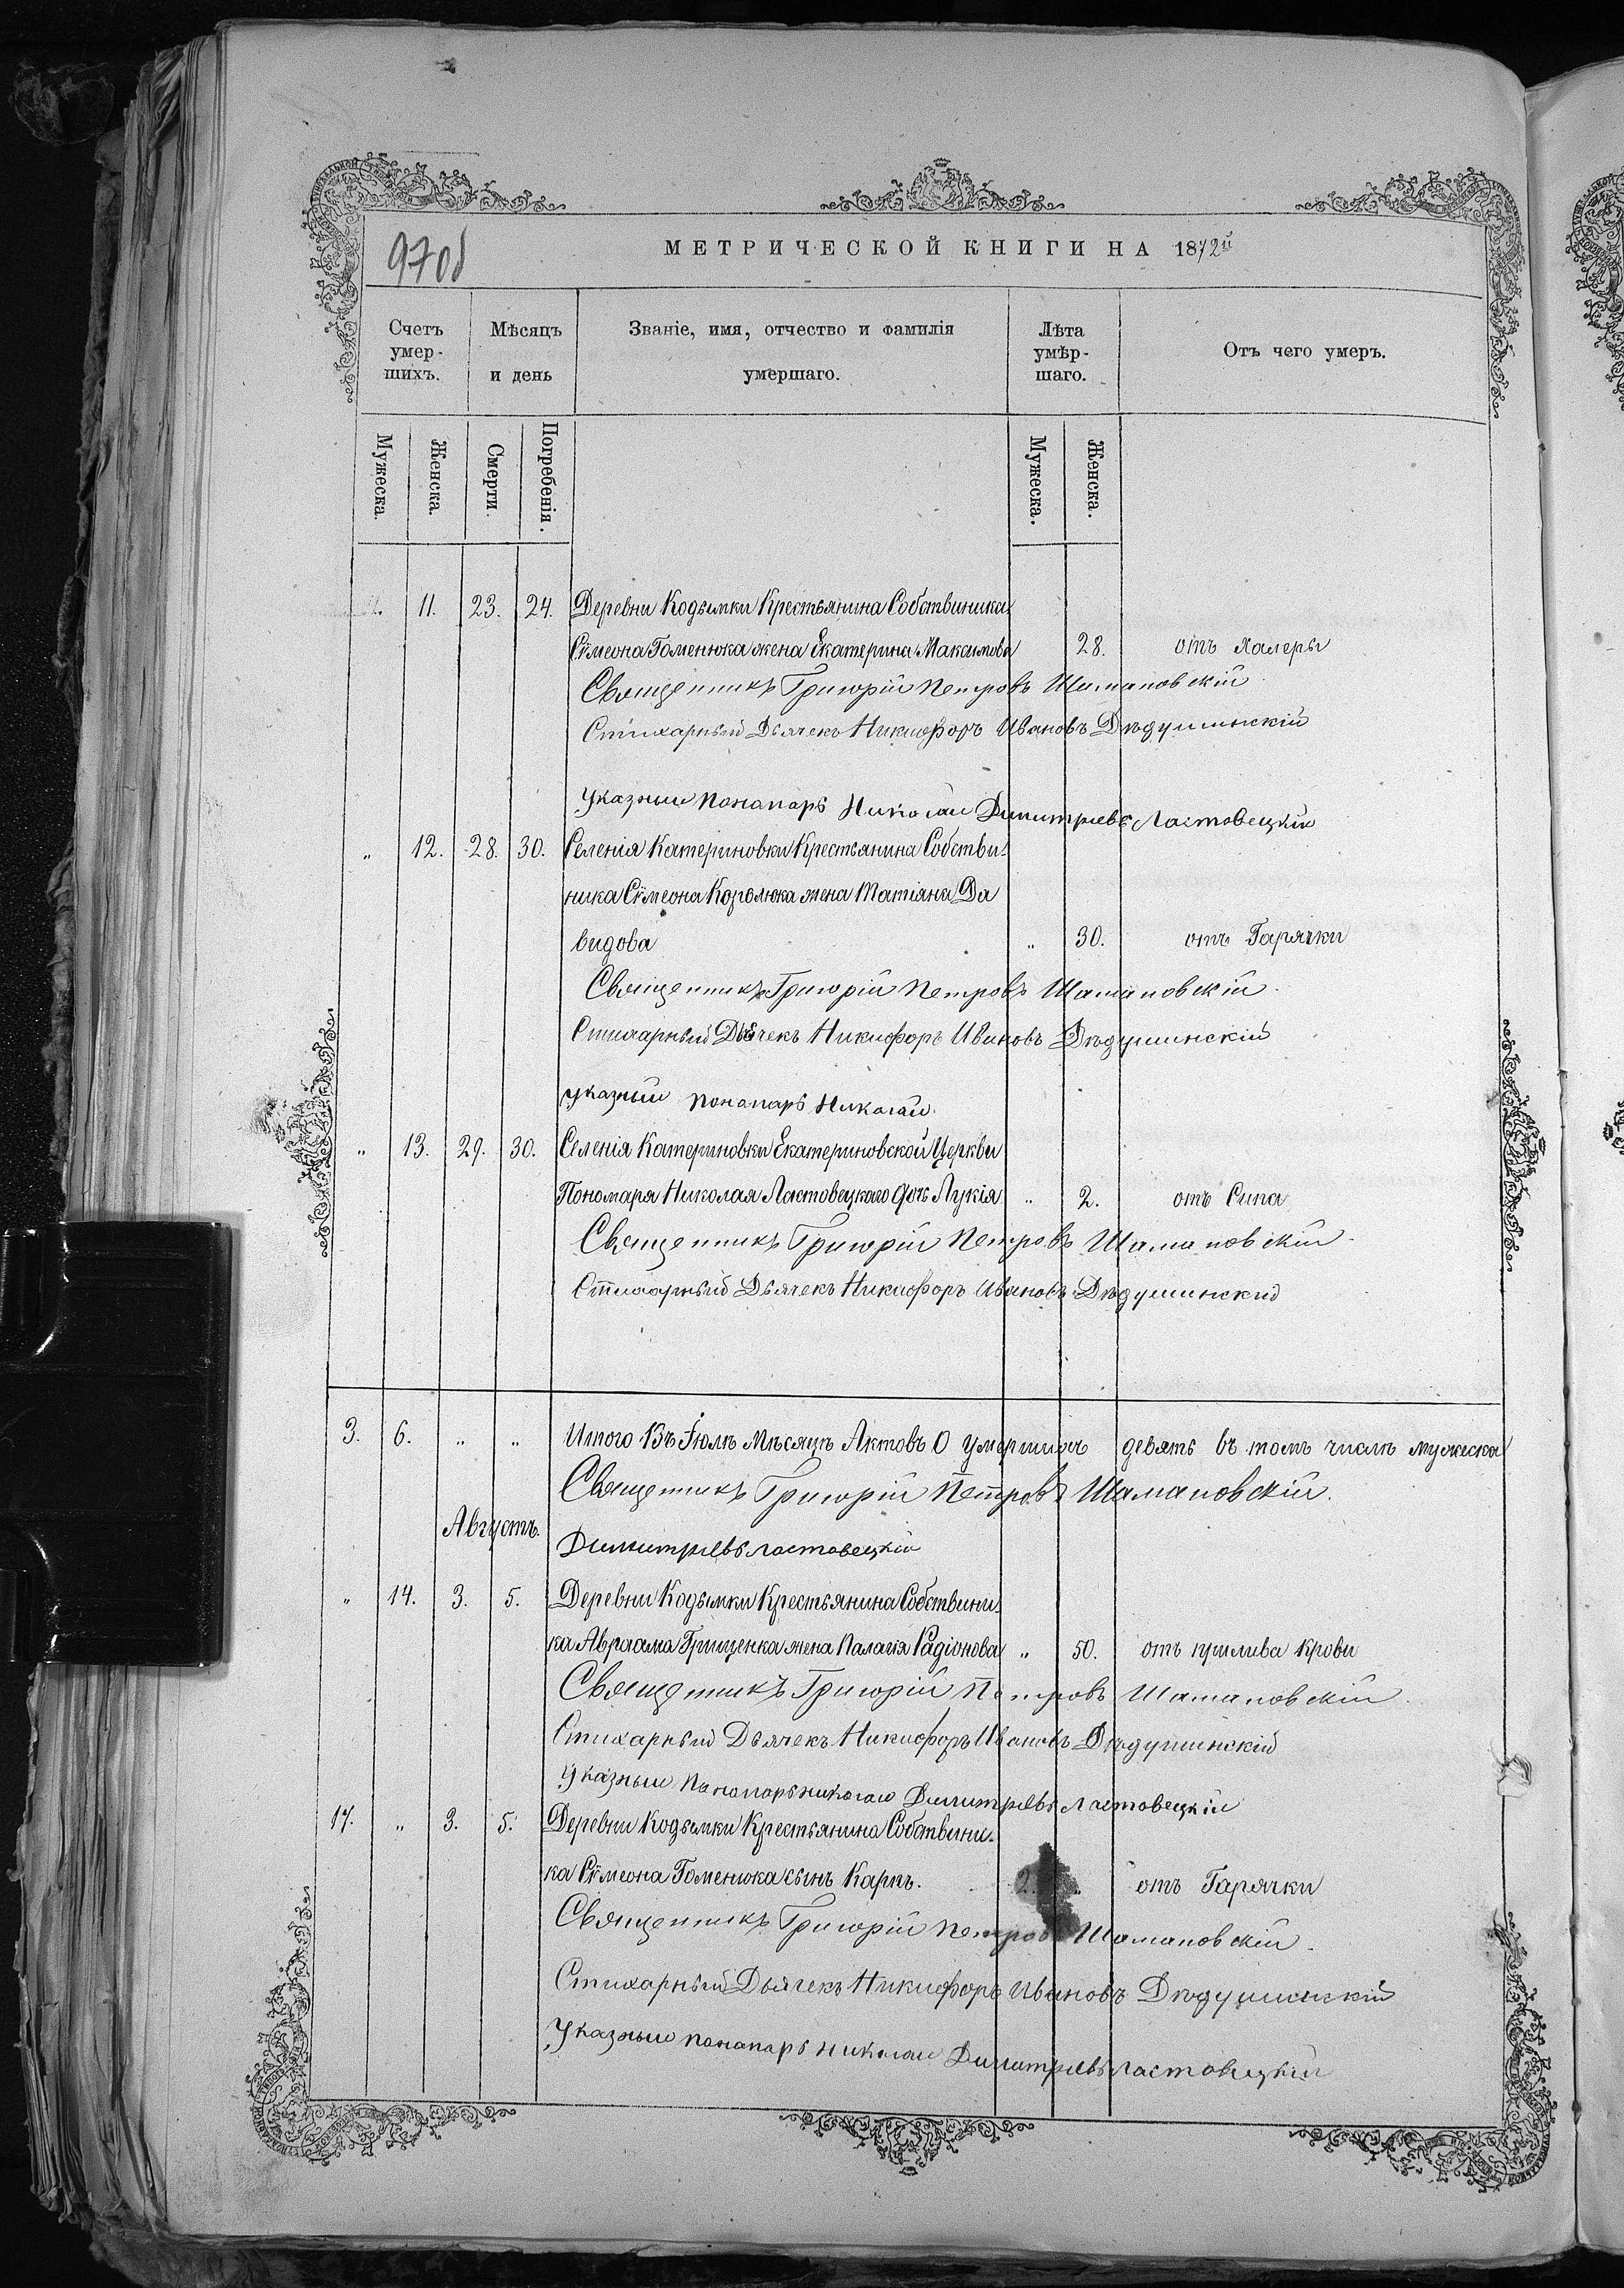 970б
МЕТРИЧЕСКОЙ КНИГИ НА 1872й
Счетъ умер-шихъ. Мѣсяцъ и день Званіе, имя, отчество и фамилія умершаго. Лѣта умѣр-шаго. Отъ чего умеръ.
Мужеска. Женска. Смерти. Погребенія. Мужеска. Женска.
„ 11. 23. 24. Деревни Кодымки Крестьянина Собствиника
Сѵмеона Гоменюка жена Екатерина Максимова 28. отъ Халеры
Священникъ Григорій Петровъ Шамановскій
Стихарный Дьячекъ Никифоръ Ивановъ Дѣдушинскій
Указныи Понамарь Николаи Димитриевъ Ластовецкій
„ 12. 28. 30. Селенія Катериновки Крестьянина Собстви-
ника Сѵмеона Королюка жена Татіяна Да
видова „ 30. отъ Гарячки
Священникъ Григорій Петровъ Шамановскій.
Стихарный Дьячекъ Никифоръ Ивановъ Дѣдушинскій
указныи понамарь Николаи.
„ 13. 29. 30. Селенія Катериновки Екатериновской Церкви
Пономаря Николая Ластовецкаго дочь Лукія „ 2. отъ Сипа
Священникъ Григорій Петровъ Шамановскій.
Стихарный Дьячекъ Никифоръ Ивановъ Дѣдушинский
3. 6. „ „ Итого Въ Іюлѣ Мѣсяцѣ Актовъ О умершихъ девять въ томъ числѣ мужеска
Священникъ Григорій Петровъ Шамановскій.
Августъ.
Димитриевъ Ластовецкій
„ 14. 3. 5. Деревни Кодымки Крестьянина Собствини-
ка Авраама Гриценка жена Палагія Радіонова „ 50. отъ крови
Священникъ Григорій Петровъ Шамановскій.
Стихарный Дьячекъ Никифоръ Ивановъ Дѣдушинскій
Указныи Понамарь николаи Димитриевъ Ластовецкій
17. „ 3. 5. Деревни Кодымки Крестьянина Собствини-
ка Сѵмеона Гоменюка сынъ Карпъ. 2. „ отъ Гарячки
Священникъ Григорій Петровъ Шамановскій.
Стихарный Дьячекъ Никифоръ Ивановъ Дѣдушинскій
Указныи понамарь николаи Димитриевъ Ластовецкій